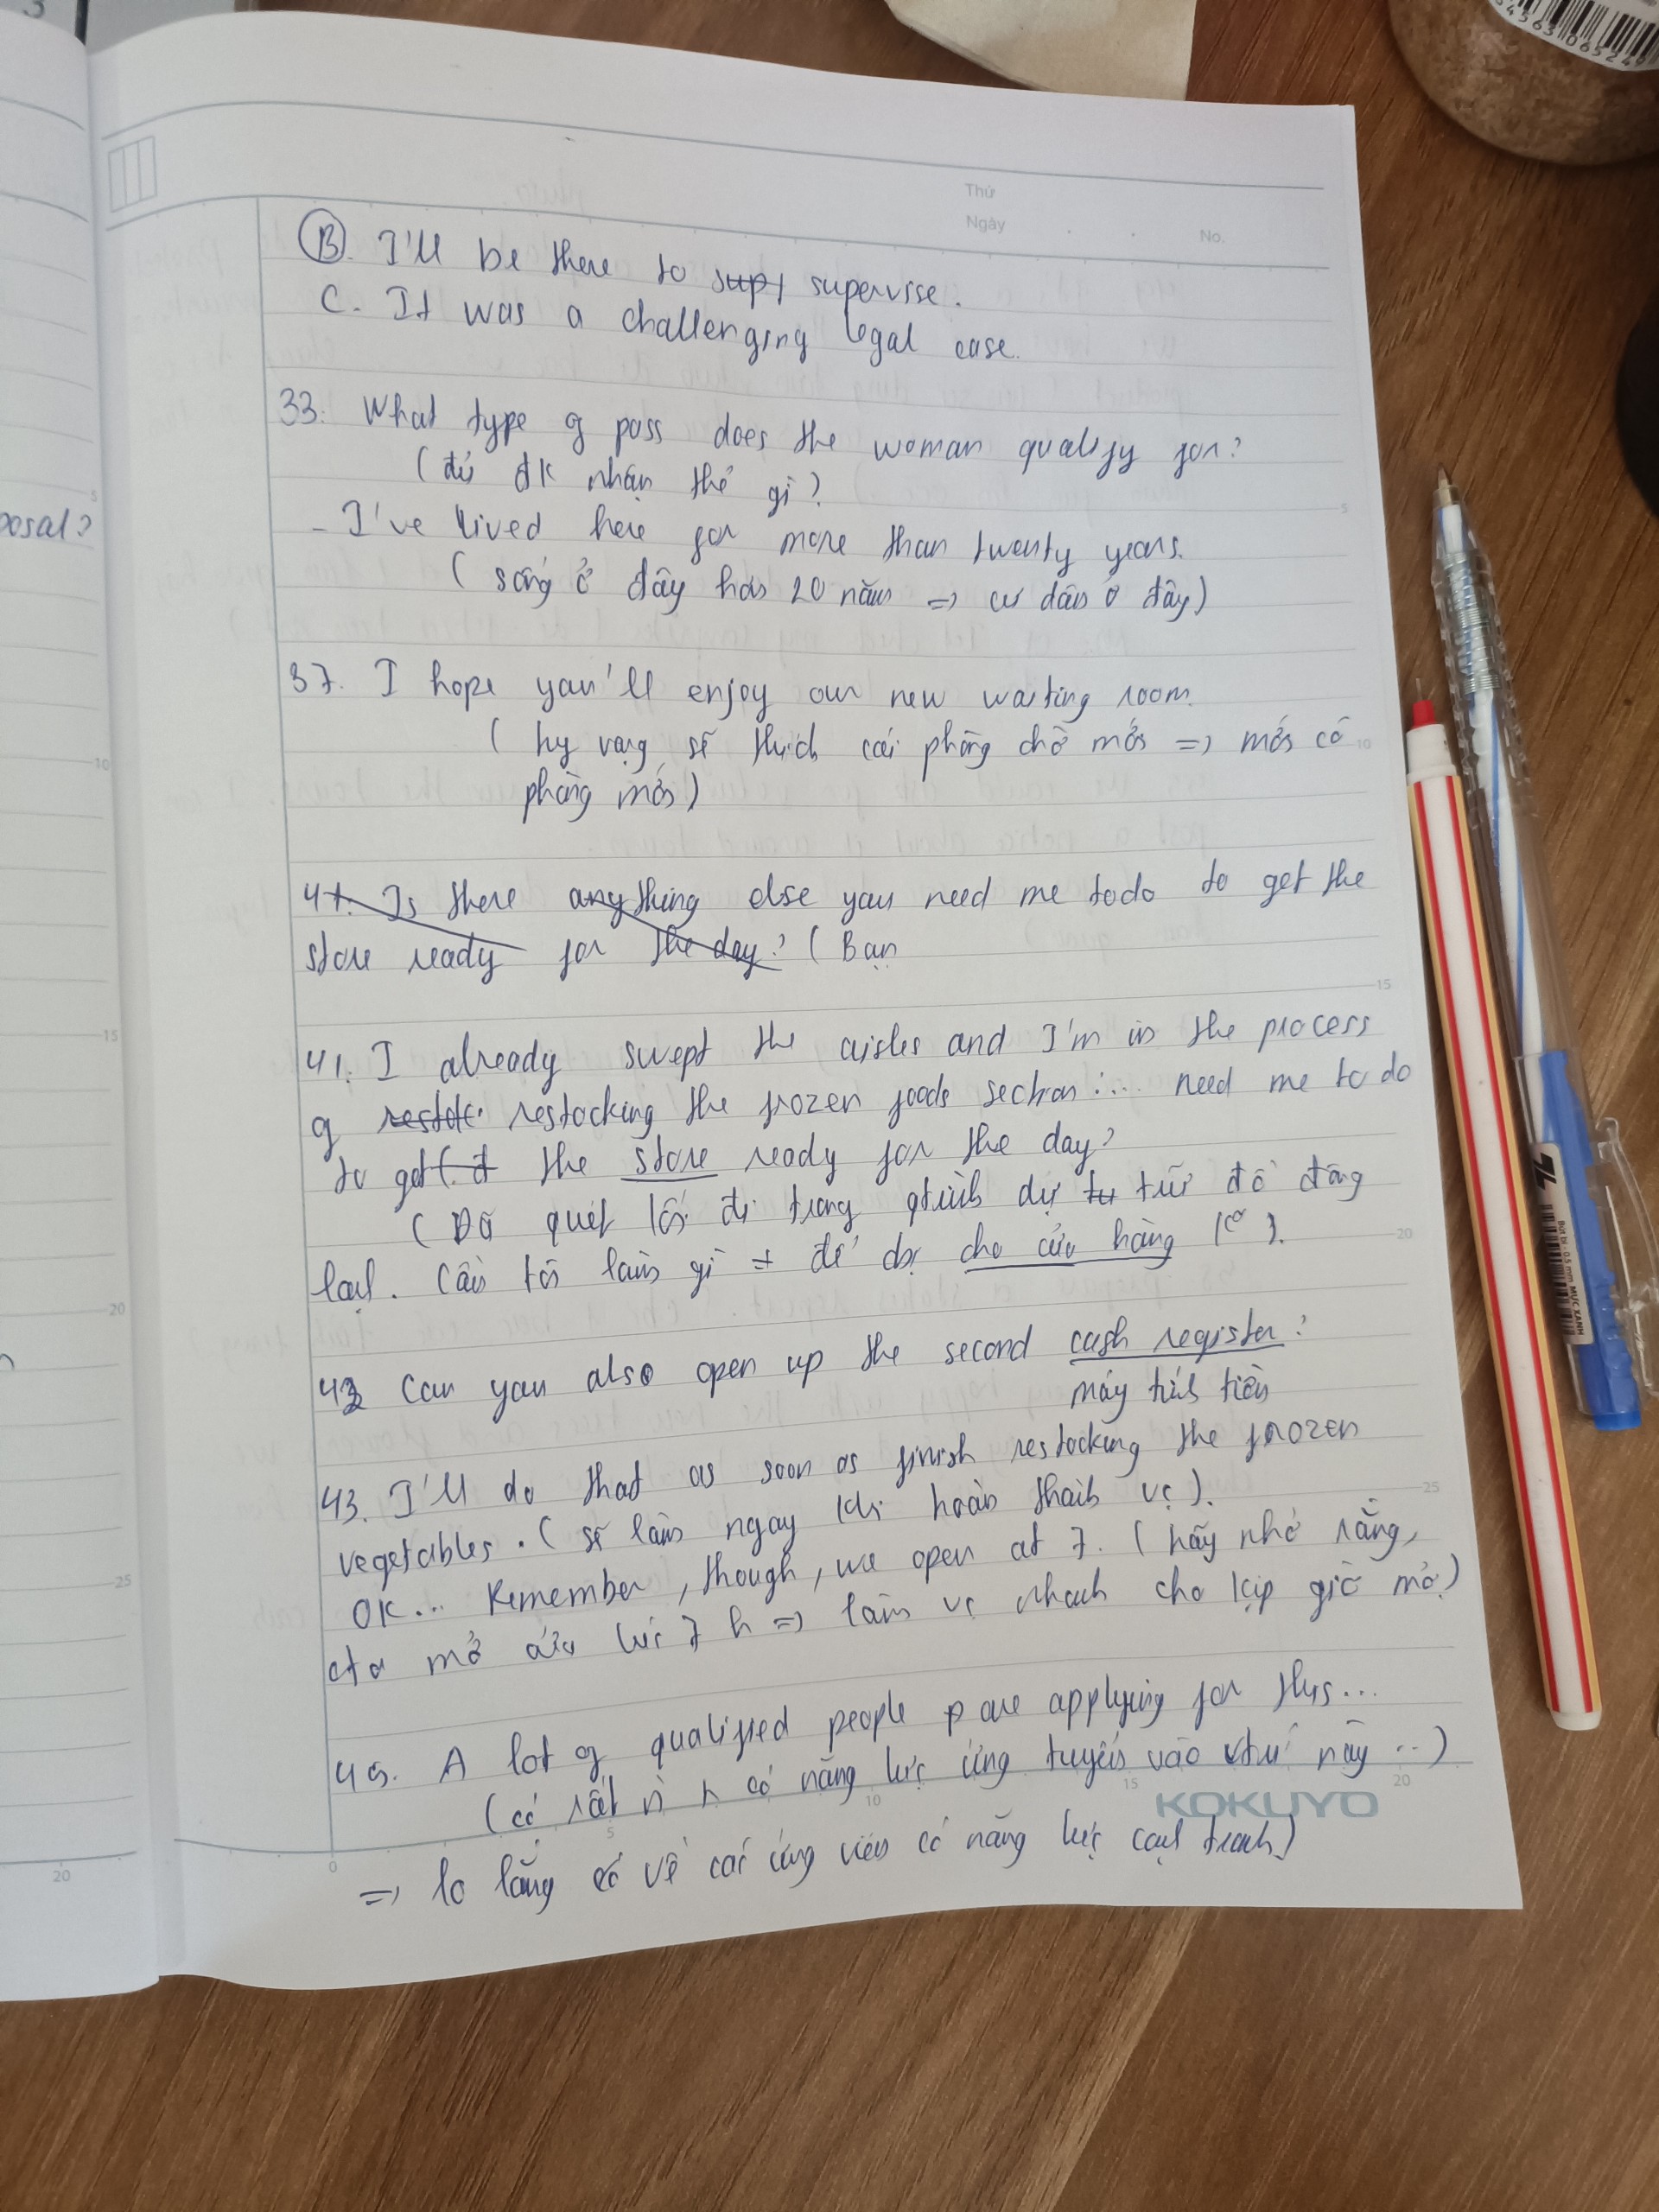 3
64563 06524
Thứ
Ngày
No.
B. I'll be there to supervise.
C. It was a challenging legal case.
33. What type of pass does the woman qualify for?
(đủ đk nhận thẻ gì?)
- I've lived here for more than twenty years.
(sống ở đây hơn 20 năm => cư dân ở đây)
37. I hope you'll enjoy our new waiting room.
(hy vọng sẽ thích cái phòng chờ mới => mới có
phòng mới)
41. Is there anything else you need me to do to get the
store ready for the day? (Bạn
41. I already swept the aisles and I'm in the process
of restocking the frozen foods section... need me to do
to get the store ready for the day?
(Đã quét lối đi trong qtrình dự trữ đồ đông
lạnh. Cần tôi làm gì để cbị cho cửa hàng ko).
42 Can you also open up the second cash register?
máy tính tiền
43. I'll do that as soon as finish restocking the frozen
vegetables. (sẽ làm ngay khi hoàn thành vc).
OK... Remember, though, we open at 7. (hãy nhớ rằng,
cta mở cửa lúc 7 h => làm vc nhanh cho kịp giờ mở)
45. A lot of qualified people are applying for this...
(có rất n n có năng lực ứng tuyển vào vtrí này ...)
=> lo lắng về các ứng viên có năng lực cạnh tranh)
KOKUYO
posal?
5
10
15
20
25
5
10
15
20
25
0
5
10
15
20
20
TL
Bút bi 0.5 mm MỰC XANH